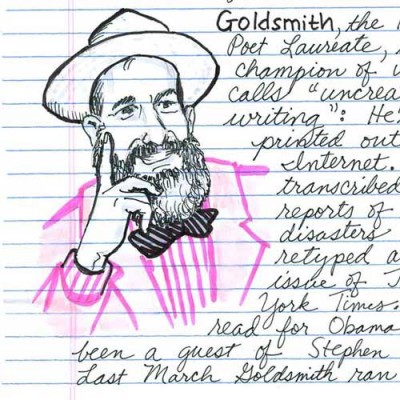 Goldsmith, the
Poet Laureate,
champion of
calls "uncrea
writing": He's
printed out
Internet.
transcribed
reports of
disasters
retyped a
issue of T
York Times.
read for Obama
been a guest of Stephen
Last March Goldsmith ran